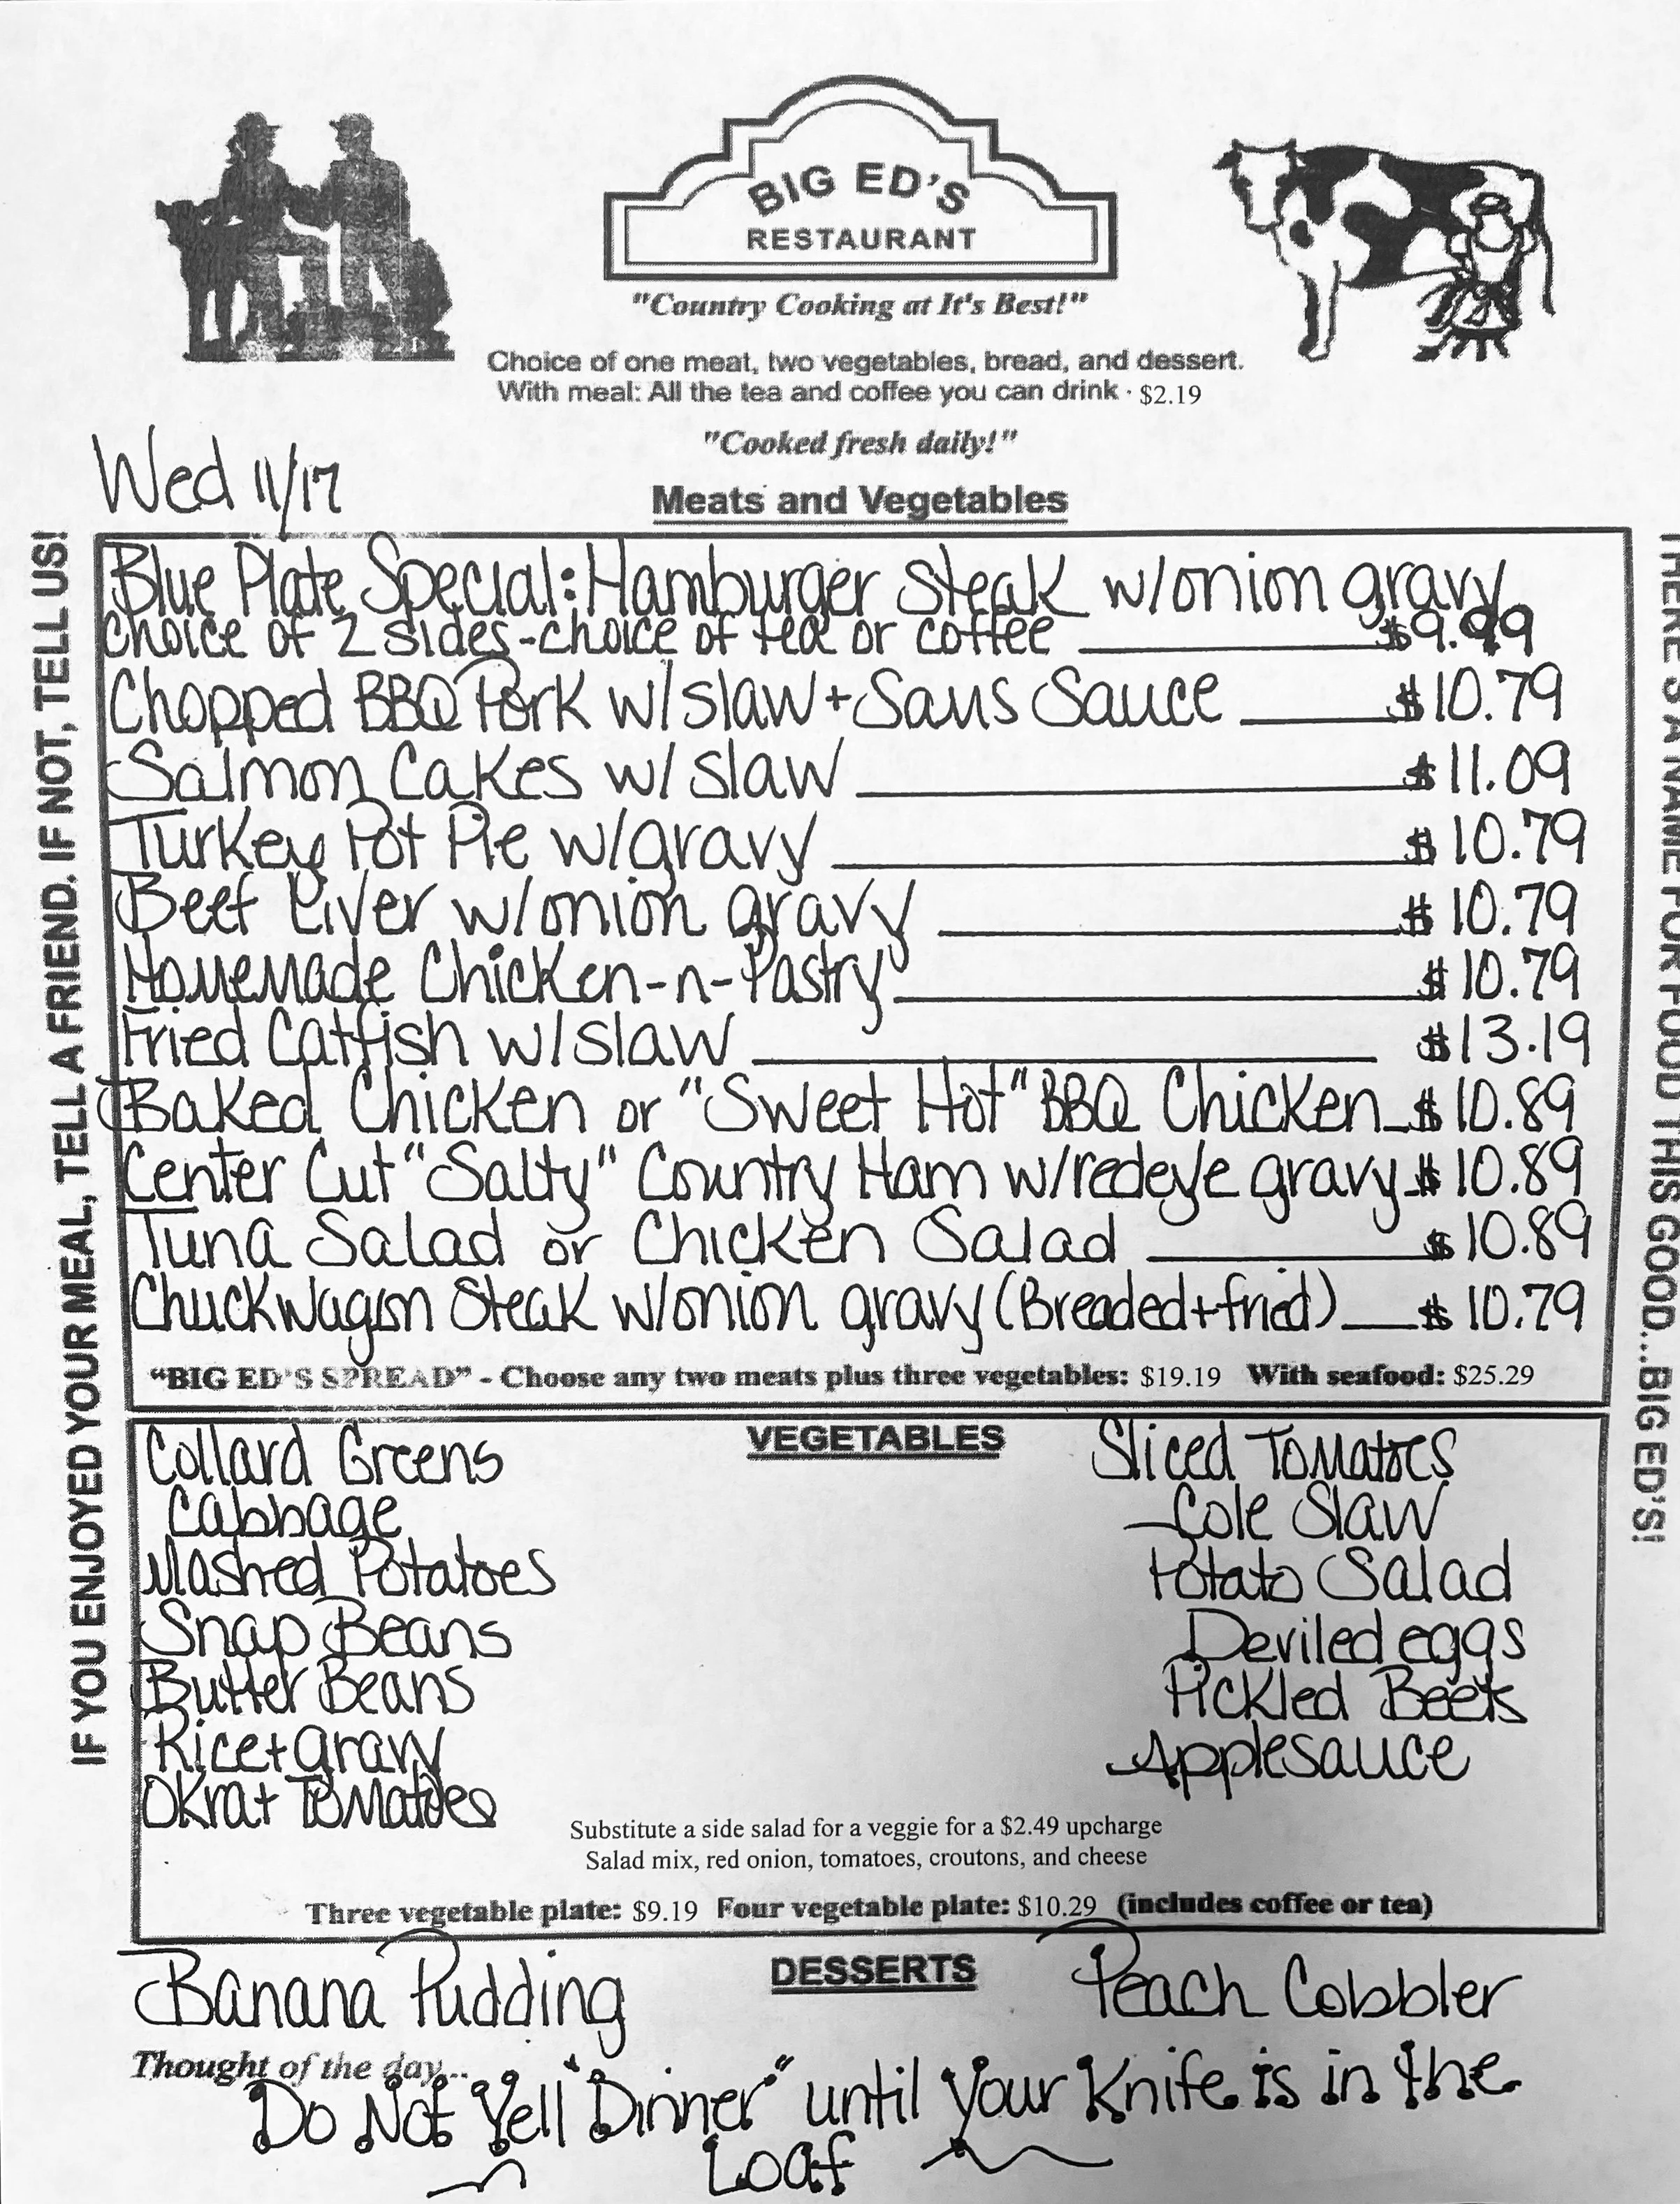 BIG ED'S
RESTAURANT
"Country Cooking at It's Best!"
Choice of one meat, two vegetables, bread, and dessert.
With meal: All the tea and coffee you can drink · $2.19
"Cooked fresh daily!"
Wed 11/17
Meats and Vegetables
IF YOU ENJOYED YOUR MEAL, TELL A FRIEND. IF NOT, TELL US!
Blue Plate Special: Hamburger Steak w/onion gravy
choice of 2 sides-choice of tea or coffee $9.99
Chopped BBQ Pork w/slaw + Sams Sauce $10.79
Salmon Cakes w/slaw $11.09
Turkey Pot Pie w/gravy $10.79
Beef Liver w/onion gravy $10.79
Homemade Chicken-n-Pastry $10.79
Fried Catfish w/slaw $13.19
Baked Chicken or "Sweet Hot" BBQ Chicken $10.89
Center Cut "Salty" Country Ham w/redeye gravy $10.89
Tuna Salad or Chicken Salad $10.89
Chuckwagon Steak w/onion gravy (Breaded+fried) $10.79
"BIG ED'S SPREAD" - Choose any two meats plus three vegetables: $19.19 With seafood: $25.29
THERE'S A NAME FOR FOOD THIS GOOD...BIG ED'S!
VEGETABLES
Collard Greens
Cabbage
Mashed Potatoes
Snap Beans
Butter Beans
Rice+gravy
Okra+ Tomatoes
Sliced Tomatoes
Cole Slaw
Potato Salad
Deviled eggs
Pickled Beets
Applesauce
Substitute a side salad for a veggie for a $2.49 upcharge
Salad mix, red onion, tomatoes, croutons, and cheese
Three vegetable plate: $9.19 Four vegetable plate: $10.29 (includes coffee or tea)
DESSERTS
Banana Pudding
Peach Cobbler
Thought of the day...
Do Not Yell "Dinner" until your Knife is in the
Loaf